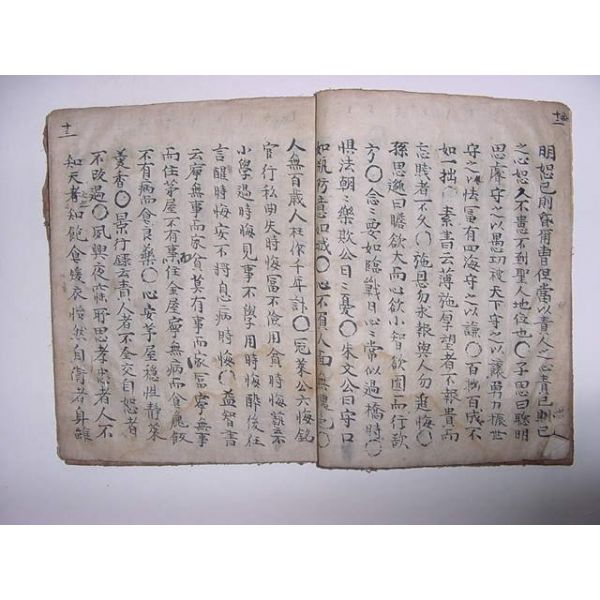 明恕己則昏爾曹但當以責人之心責己則己
之心恕久不患不到聖人地位也〇子思曰聰明
思慮守之以愚功被天下守之以讓勇力振世
守之以怯富有四海守之以謙〇百巧百成不
如一拙〇素書云薄施厚望者不報貴而
忘賤者不久〇施恩勿求報與人勿追悔〇
孫思邈曰瞻欲大而心欲小智欲圓而行欲
方〇念〻要如臨戰日心〻常似過橋時〇
惧法朝〻樂欺公日〻憂〇朱文公曰守口
如瓶防意如城〇心不負人面無慙色〇
人無百歲人枉作千年計〇冦萊公六悔銘
官行私曲失時悔冨不儉用貧時悔藝不
小學過時悔見事不學用時悔醉後狂
言醒時悔安不將息病時悔〇益智書
云寧無事而家貧莫有事而家冨寧無事
而住茅屋不有事住金屋寧無病而食麁飯
不有病而食良藥〇心安茅屋穩性靜菜
羹香〇景行錄云責人者不全交自恕者
不改過〇夙興夜寐所思孝忠者人不
知天者知飽食煖衣怡然自衛者身雖